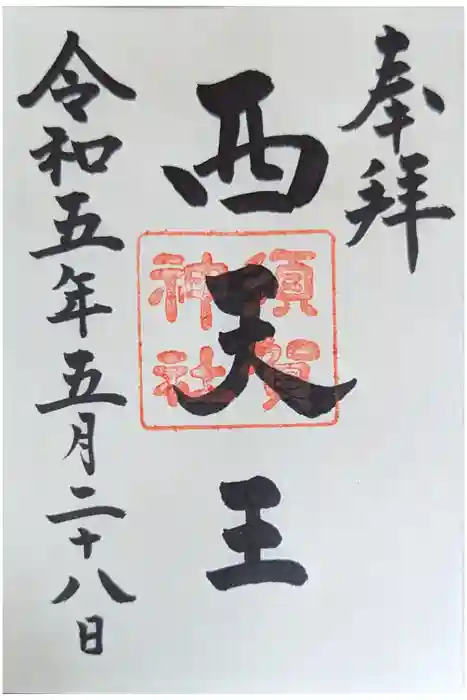 奉拝
西天王
須賀
神社
令和五年五月二十八日